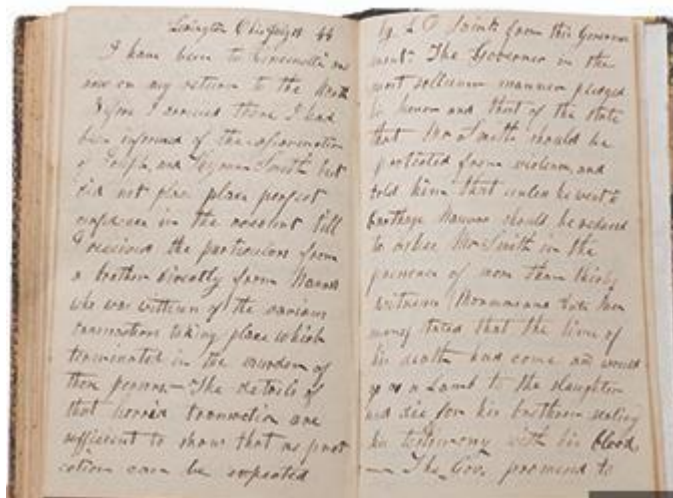 Lexington Ohio July 18 44
I have been to Cincinnatti am
now on my return to the North
Before I arrived there I had
been informed of the assassination
of Joseph and Hyrum Smith but
did not plac place perfect
confidence in the account till
I received the particulars from
a brother directly from Nauvoo
who was witness of the various
transactions taking place which
terminated in the murder of
these persons — The details of
that horrid transaction are
sufficient to show that no prot
ection can be expected
by L D Saints from this Govern
ment. The Governor in the
most sollemn manner pledged
his honor and that of the state
that Mr Smith should be
protected from violence, and
told him that unless he went to
Carthage Nauvoo should be reduced
to ashes Mr Smith in the
presence of more than thirty
witness Mormons and
stated that the time of
his death had come and would
go as a Lamb to the slaughter
and die for his brethren sealing
his testimony with his blood,
— The Gov. promised to